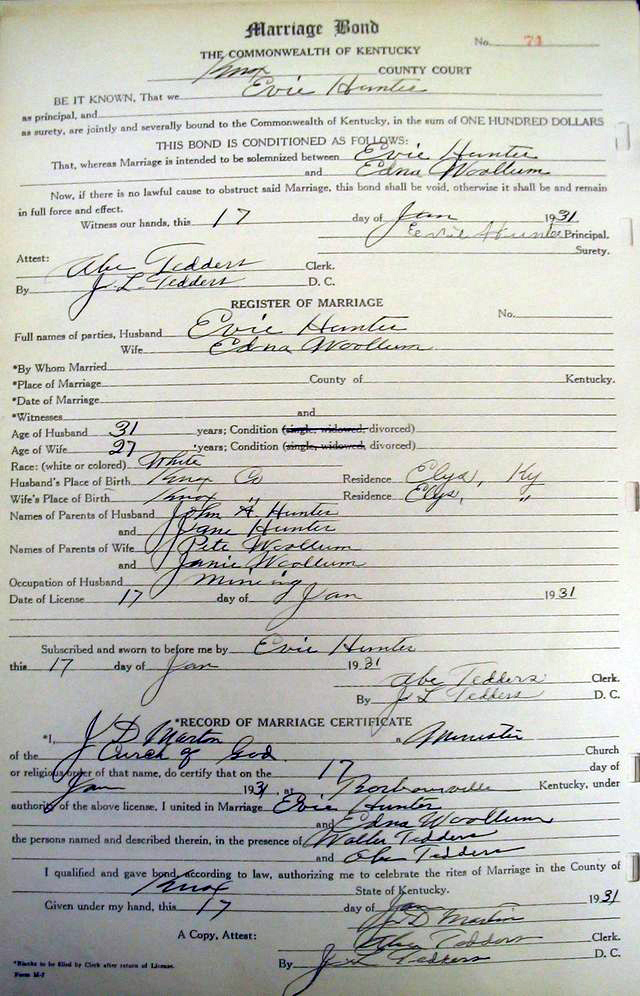 Marriage Bond
No. 71
THE COMMONWEALTH OF KENTUCKY
Knox COUNTY COURT
BE IT KNOWN, That we Evie Hunter
as principal, and
as surety, are jointly and severally bound to the Commonwealth of Kentucky, in the sum of ONE HUNDRED DOLLARS
THIS BOND IS CONDITIONED AS FOLLOWS:
That, whereas Marriage is intended to be solemnized between Evie Hunter
and Edna Woollum
Now, if there is no lawful cause to obstruct said Marriage, this bond shall be void, otherwise it shall be and remain
in full force and effect.
Witness our hands, this 17 day of Jan 1931
Evie Hunter Principal.
Surety.
Attest:
Abe Tedders Clerk.
By J. L. Tedders D. C.
REGISTER OF MARRIAGE
No.
Full names of parties, Husband Evie Hunter
Wife Edna Woollum
*By Whom Married
*Place of Marriage County of Kentucky.
*Date of Marriage
*Witnesses and
Age of Husband 31 years; Condition (single, widowed, divorced)
Age of Wife 27 years; Condition (single, widowed, divorced)
Race: (white or colored) White
Husband's Place of Birth Knox Co Residence Elys, Ky
Wife's Place of Birth Knox " Residence Elys, "
Names of Parents of Husband John A. Hunter
and Jane Hunter
Names of Parents of Wife Pete Woollum
and Janie Woollum
Occupation of Husband Mining
Date of License 17 day of Jan 1931
Subscribed and sworn to before me by Evie Hunter
this 17 day of Jan 1931
Abe Tedders Clerk.
By J L Tedders D. C.
*RECORD OF MARRIAGE CERTIFICATE
*I, J D Martin a Minister
of the Curch of God Church
or religious order of that name, do certify that on the 17 day of
Jan 1931 at Borbourville Kentucky, under
authority of the above license, I united in Marriage Evie Hunter
and Edna Woollum
the persons named and described therein, in the presence of Walter Tedders
and Obe Tedders
I qualified and gave bond according to law, authorizing me to celebrate the rites of Marriage in the County of
Knox State of Kentucky.
Given under my hand, this 17 day of Jan 1931
J D Martin
A Copy, Attest: Abe Tedders Clerk.
By J L Tedders D. C.
*Blanks to be filled by Clerk after return of License.
Form M-2